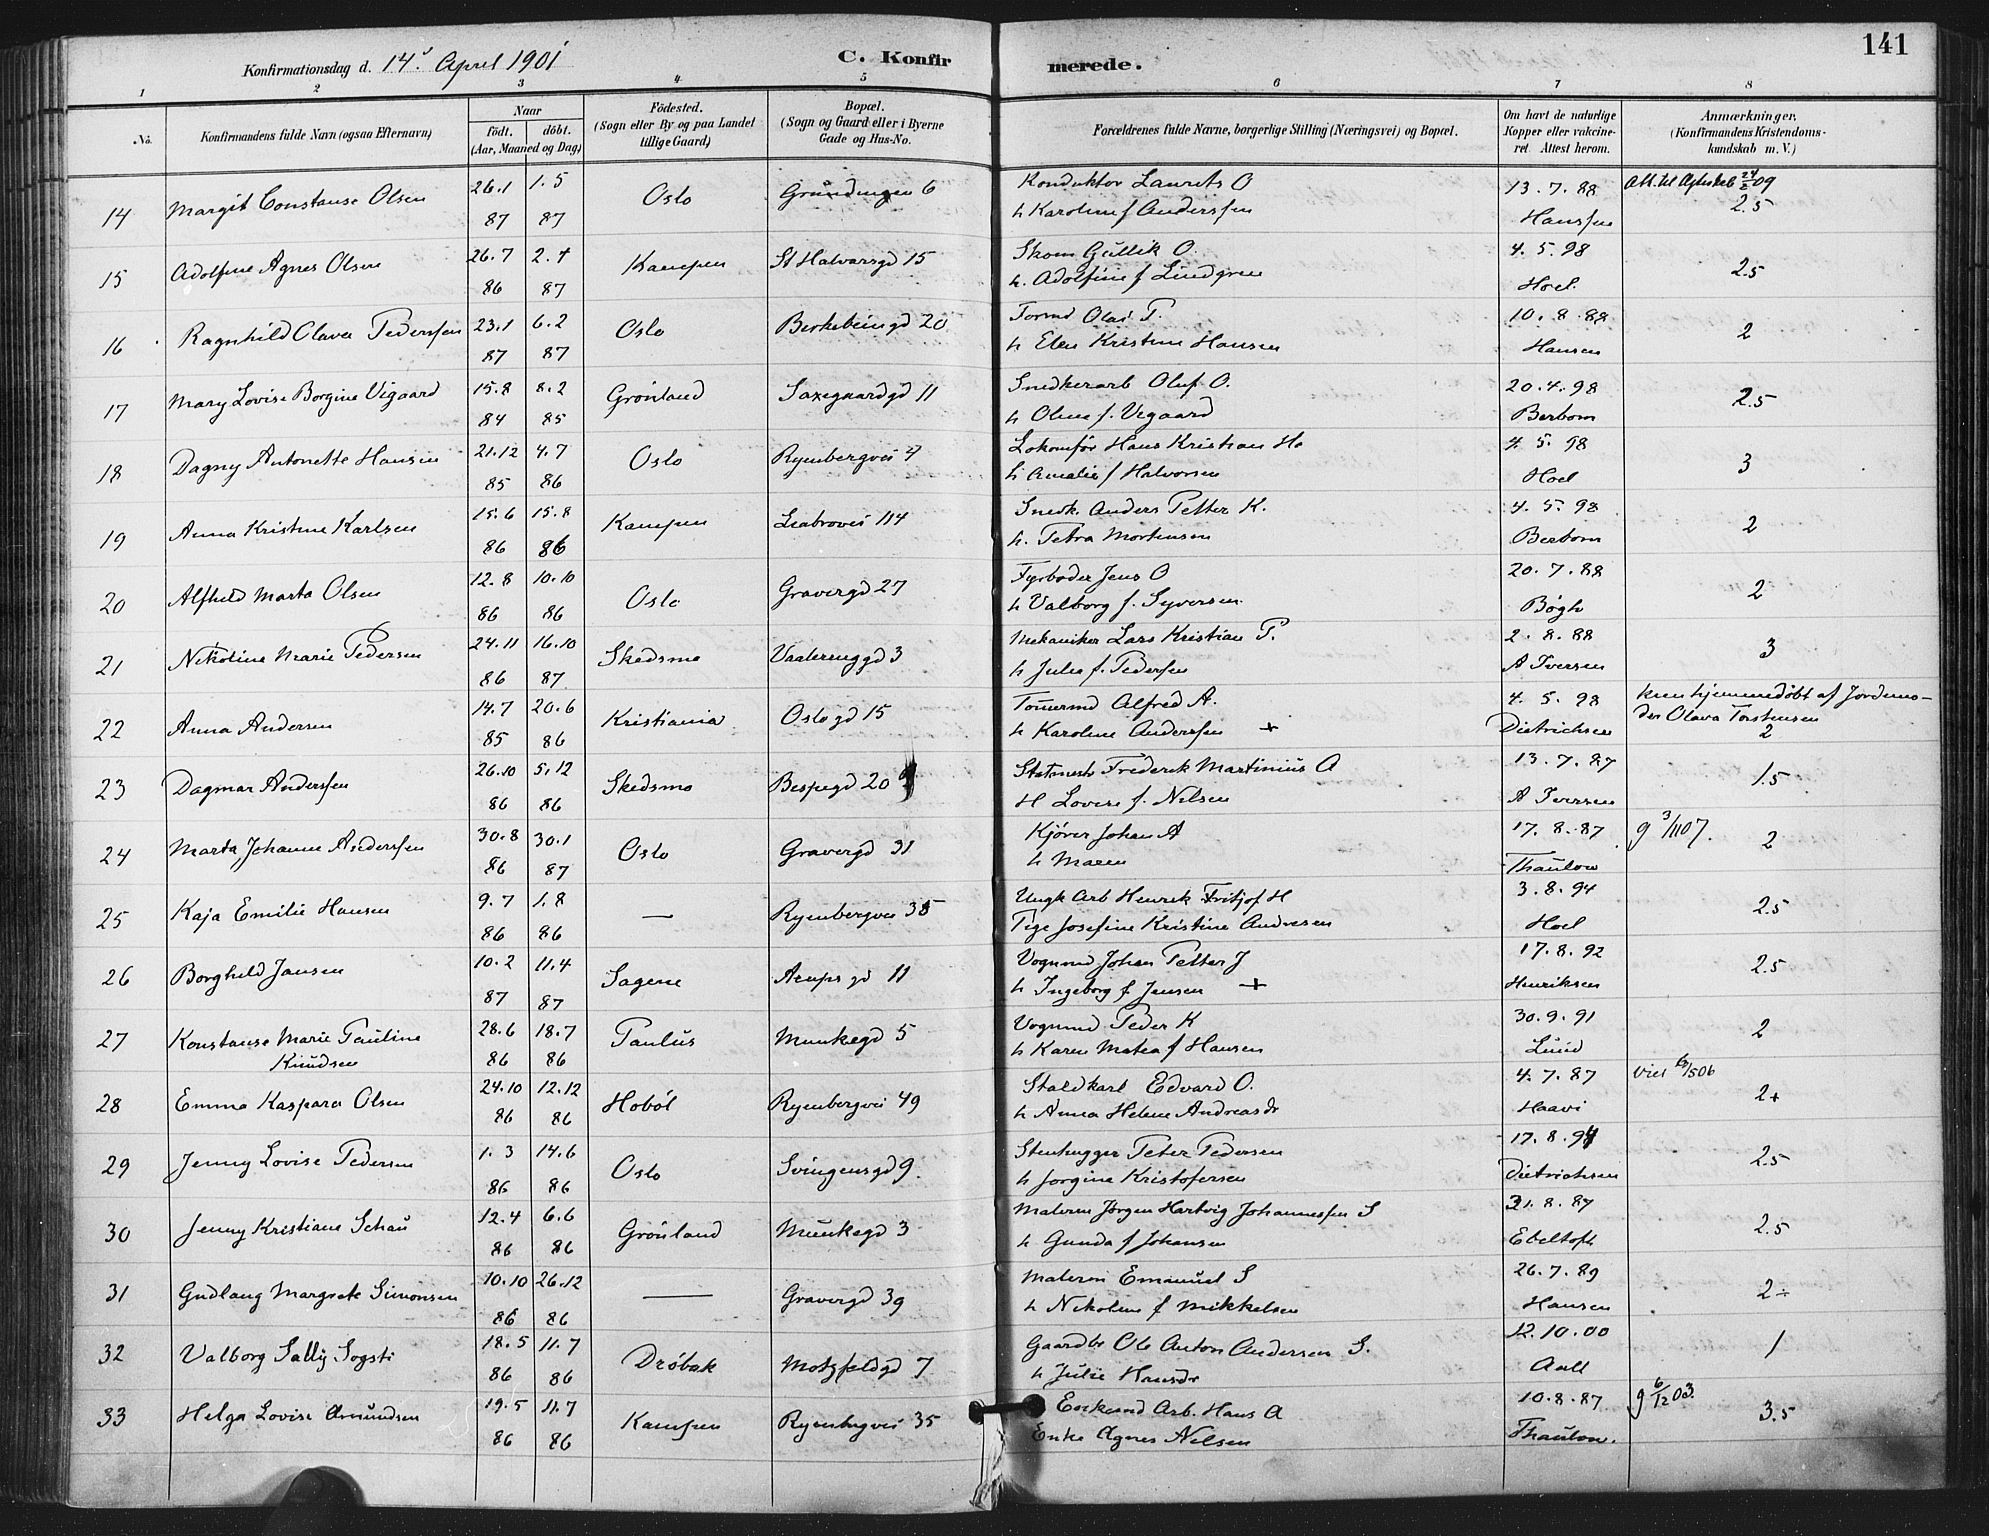 141
Konfirmationsdag d. 14. April 1901 C. Konfir merede.
1 2 3 4 5 6 7 8
No. Konfirmandens fulde Navn (ogsaa Efternavn) Naar født. døbt. (Aar, Maaned og Dag) Födested. (Sogn eller By og paa Landet tillige Gaard) Bopæl. (Sogn og Gaard eller i Byerne Gade og Hus-No. Forældrenes fulde Navne, borgerlige Stilling (Næringsvei) og Bopæl. Om havt de naturlige Kopper eller vaccineret Attest herom. Anmærkninger. (Konfirmandens Kristendomskundskab m. V.)
14 Margit Constanse Olsen 26.1 1.5 Oslo Gründingen 6 Konduktør Laurits O 13.7.88 Att. til 24/2 09
87 87 h Karoline f Anderssen Hanssen 2.5
15 Adolfine Agnes Olsen 26.7 2.4 Kampen St Halvarsgd 15 Skom Gullik O. 4.5.98
86 87 h. Adolfine f Lindgren Hoel 2.5
16 Ragnhild Olava Pederssen 23.1 6.2 Oslo Birkebeingd 20 Formd Olai P. 10.8.88
87 87 h Elen Kristine Hansen Hansen 2
17 Mary Lovise Borgine Vigaard 15.8 8.2 Grønland Saxegaardgd 11 Snedkerarb Oluf O. 20.4.98
84 85 h Oline f. Vegaard Berbom 2.5
18 Dagny Antonette Hansen 21.12 4.7 Oslo Ryenbergvei 4 Lokomfør Hans Kristian Ha 4.5.98
85 86 h Amalie f Halvorsen Hoel 3
19 Anna Kristine Karlsen 15.6 15.8 Kampen Ljabrovei 114 Snedk. Anders Petter K. 4.5.98
86 86 h. Petra Mortensen Berbom 2
20 Alfhild Marta Olsen 12.8 10.10 Oslo Gravergd 27 Fyrbøder Jens O 20.7.88
86 86 h Valborg f. Syversen Bøgh 2
21 Nikoline Marie Pedersen 24.11 16.10 Skedsmo Vaalerenggd 3 Mekaniker Lars Kristian P. 2.8.88
86 87 h Julie f. Pedersen A Iversen 3
22 Anna Andersen 14.7 20.6 Kristiania Oslogd 15 Tømermd Alfred A. 4.5.98 kun hjemmedøbt af Jordemo-
85 86 h Karoline Anderssen + Dietrichsen der Olava Torstensen 2
23 Dagmar Anderssen 26.10 5.12 Skedsmo Bispegd 20 Frederik Martinius A 13.7.87
86 86 H Lovise f. Nelsen A Iversen 1.5
24 Marta Johanne Anderssen 30.8 30.1 Oslo Gravergd 31 Kjører Johan A 17.8.87 g 3/11 07.
86 87 h Maren Thaulow 2
25 Kaja Emilie Hansen 9.7 1.8 — Ryenbergvei 35 Ungk Arb Henrik Fritjof H 3.8.94
86 86 Pige Josefine Kristine Andresen Hoel 2.5
26 Borghild Jansen 10.2 11.4 Sagene Arups gd 11 Vognmd Johan Petter J 17.8.92
87 87 h Ingeborg f. Jensen + Henriksen 2.5
27 Konstanse Marie Pauline 28.6 18.7 Paulus Munkegd 5 Vognmd Peder K 30.9.91
Knudsen 86 86 h Karen Matea f Hansen Lund 2
28 Emma Kaspara Olsen 24.10 12.12 Hobøl Ryenbergvei 49 Staldkarl Edvard O. 4.7.87 viel 6/5 06
86 86 h Anna Helene Andreasdr Haavi 2+
29 Jenny Lovise Pedersen 1.3 14.6 Oslo Svingensgd 9. Stenhugger Peter Pedersen 17.8.94
86 86 h Jorgine Kristofersen Dietrichsen 2.5
30 Jenny Kristiane Schau 12.4 6.6 Grønland Munkegd 3 Malerm Jørgen Hartvig Johannessen S 31.8.87
86 86 h Gunda f Johansen Ebeltoft 2.5
31 Gudlaug Margrete Simonsen 10.10 26.12 — Gravergd 39 Malerm Emanuel S 26.7.89
86 86 h Nikoline f Mikkelsen Hansen 2÷
32 Valborg Sally Sogsti 18.5 11.7 Drøbak Motzfeldgd 7 Gaardbr Ole Anton Andersen S. 12.10.00
86 86 h Julie Hansdr Aall 1
33 Helga Lovise Amundsen 19.5 11.7 Kampen Ryenbergvei 35 Enkemd Arb. Hans A 10.8.87 g 6/12 03.
86 86 Enke Agnes Nelsen Thaulow. 3.5